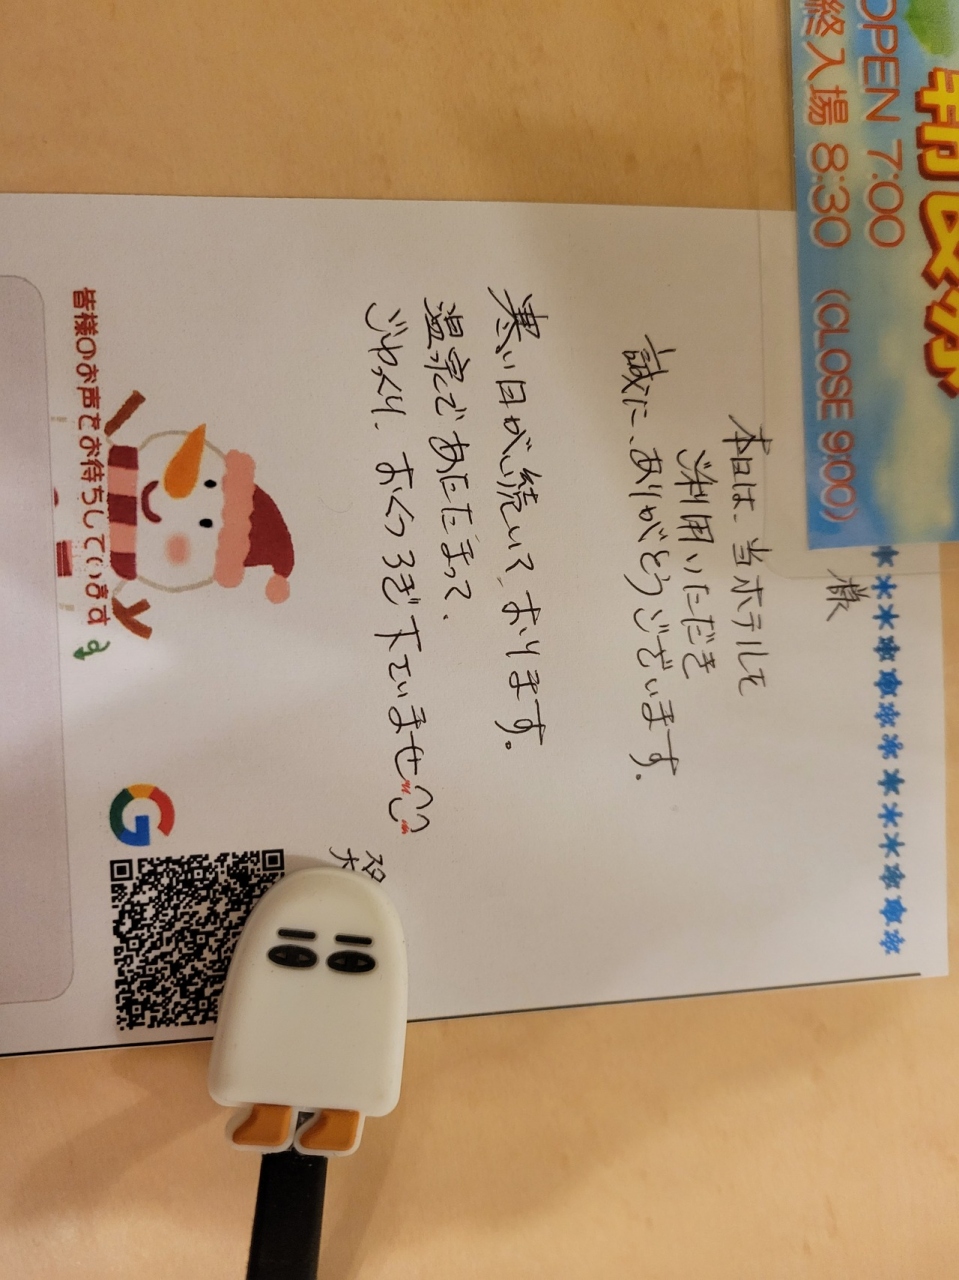 OPEN 7:00
終入場 8:30 (CLOSE 9:00)
様
本日は、当ホテルを
ご利用いただき
誠に、ありがとうございます。
寒い日が続いております。
温泉であたたまって、
ごゆっくり、おくつろぎ下さいませ
皆様のお声をお待ちしています
G